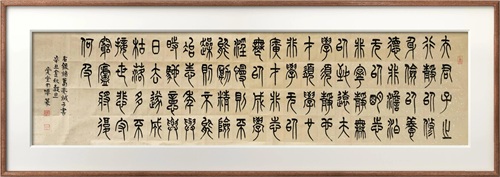 夫君子之
行靜以修
身儉以養
德非澹泊
無以明志
非寧靜無
以致遠夫
學須靜也
才須學也
非學無以
廣才非志
無以成學
淫慢則不
能勵精險
躁則不能
治性年與
時馳意與
日去遂成
枯落多不
接世悲守
窮廬將復
何及
右錄諸葛亮誡子書